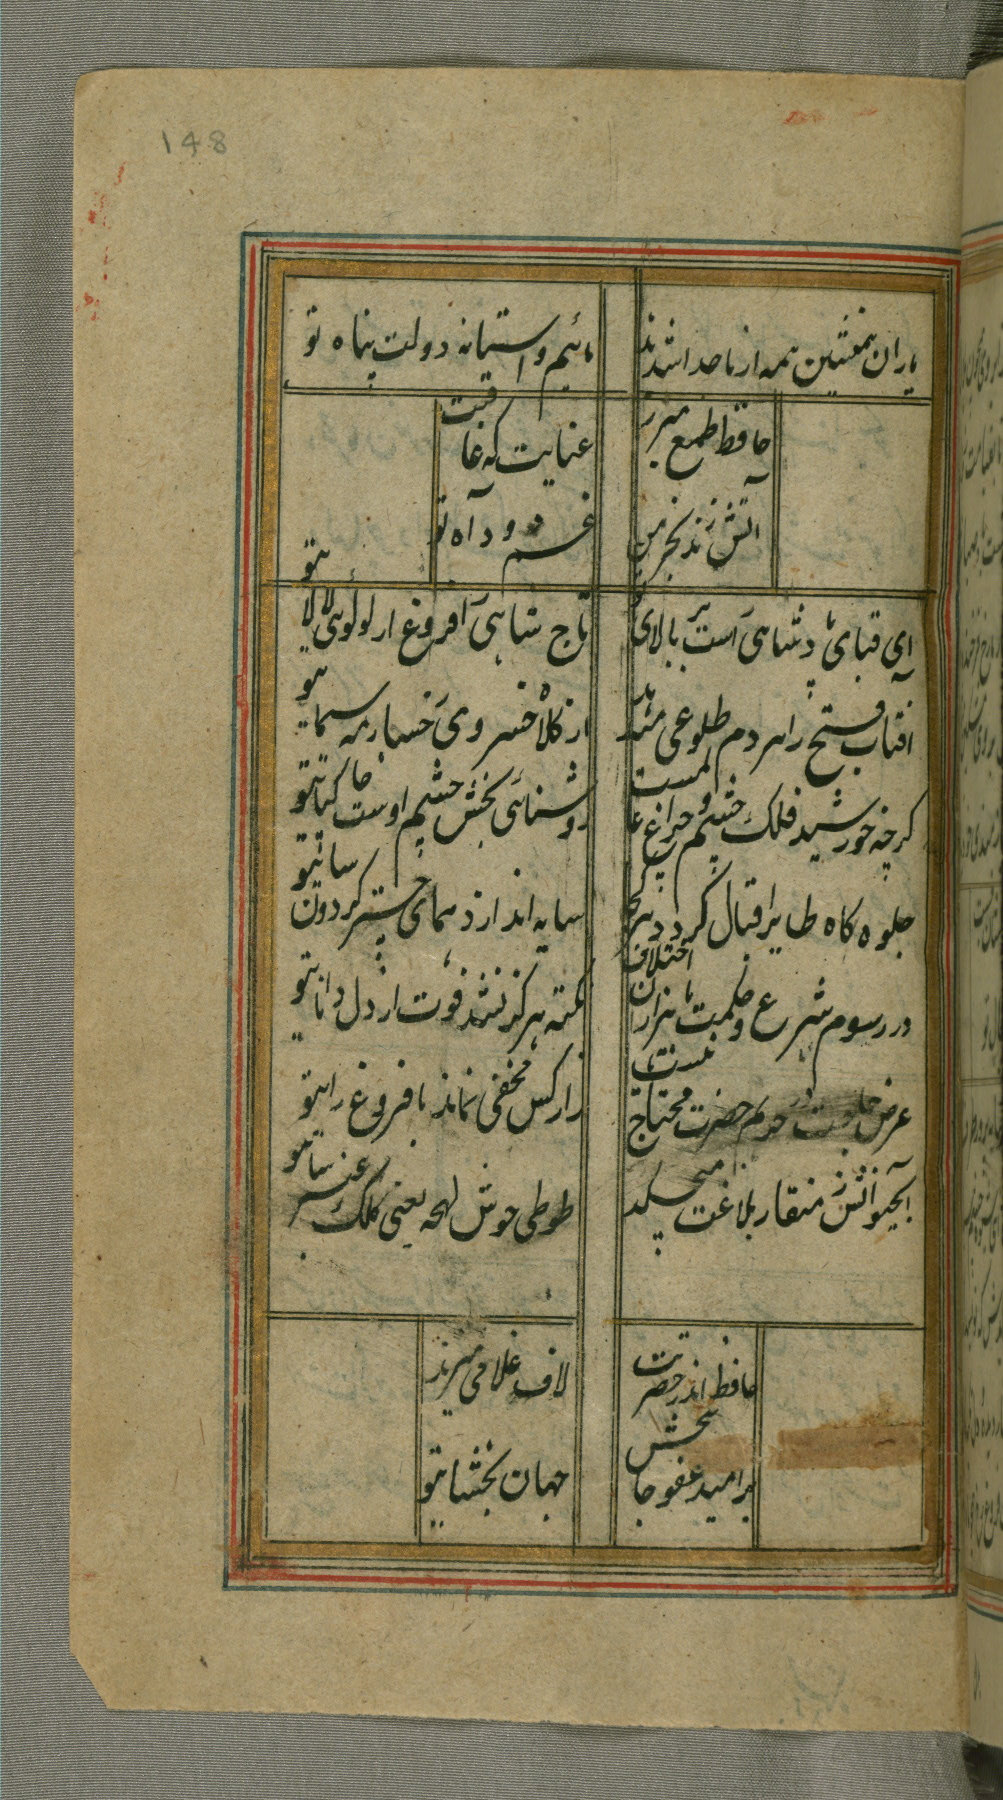 148
یاران همنشین همه از ما جدا شدند
مائیم و آستانه دولت پناه تو
حافظ طمع مبر ز
عنایت که عاقبت
آتش زند بخرمن
غم دود آه تو
ای قبای پادشاهی راست بر بالای تو
تاج شاهی را فروغ از لولوی لالای تو
آفتاب فتح را هر دم طلوعی میدهد
از کلاه خسروی رخسار مه سیمای تو
گرچه خورشید فلک چشم و چراغ عالمست
روشنائی بخش چشم اوست خاک پای تو
جلوه کاه طایر اقبال گردد هر کجا
سایه اندازد همای چتر گردون سای تو
در رسوم شرع و حکمت با هزاران اختلاف
نکته هرگز نشد فوت از دل دانای تو
عرض حاجت در حریم حضرت محتاج نیست
راز کس مخفی نماند با فروغ رای تو
آبحیوانش ز منقار بلاغت میچکد
طوطی خوش لهجه یعنی کلک عنبرسای تو
حافظ اندر حضرتت
لاف غلامی میزند
بر امید عفو جان بخش
جهان بخشای تو